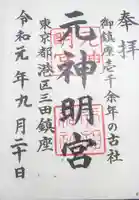 奉拝
御鎮座壱千余年の古社
元神明宮
東京都港区三田鎮座
令和元年九月二十日